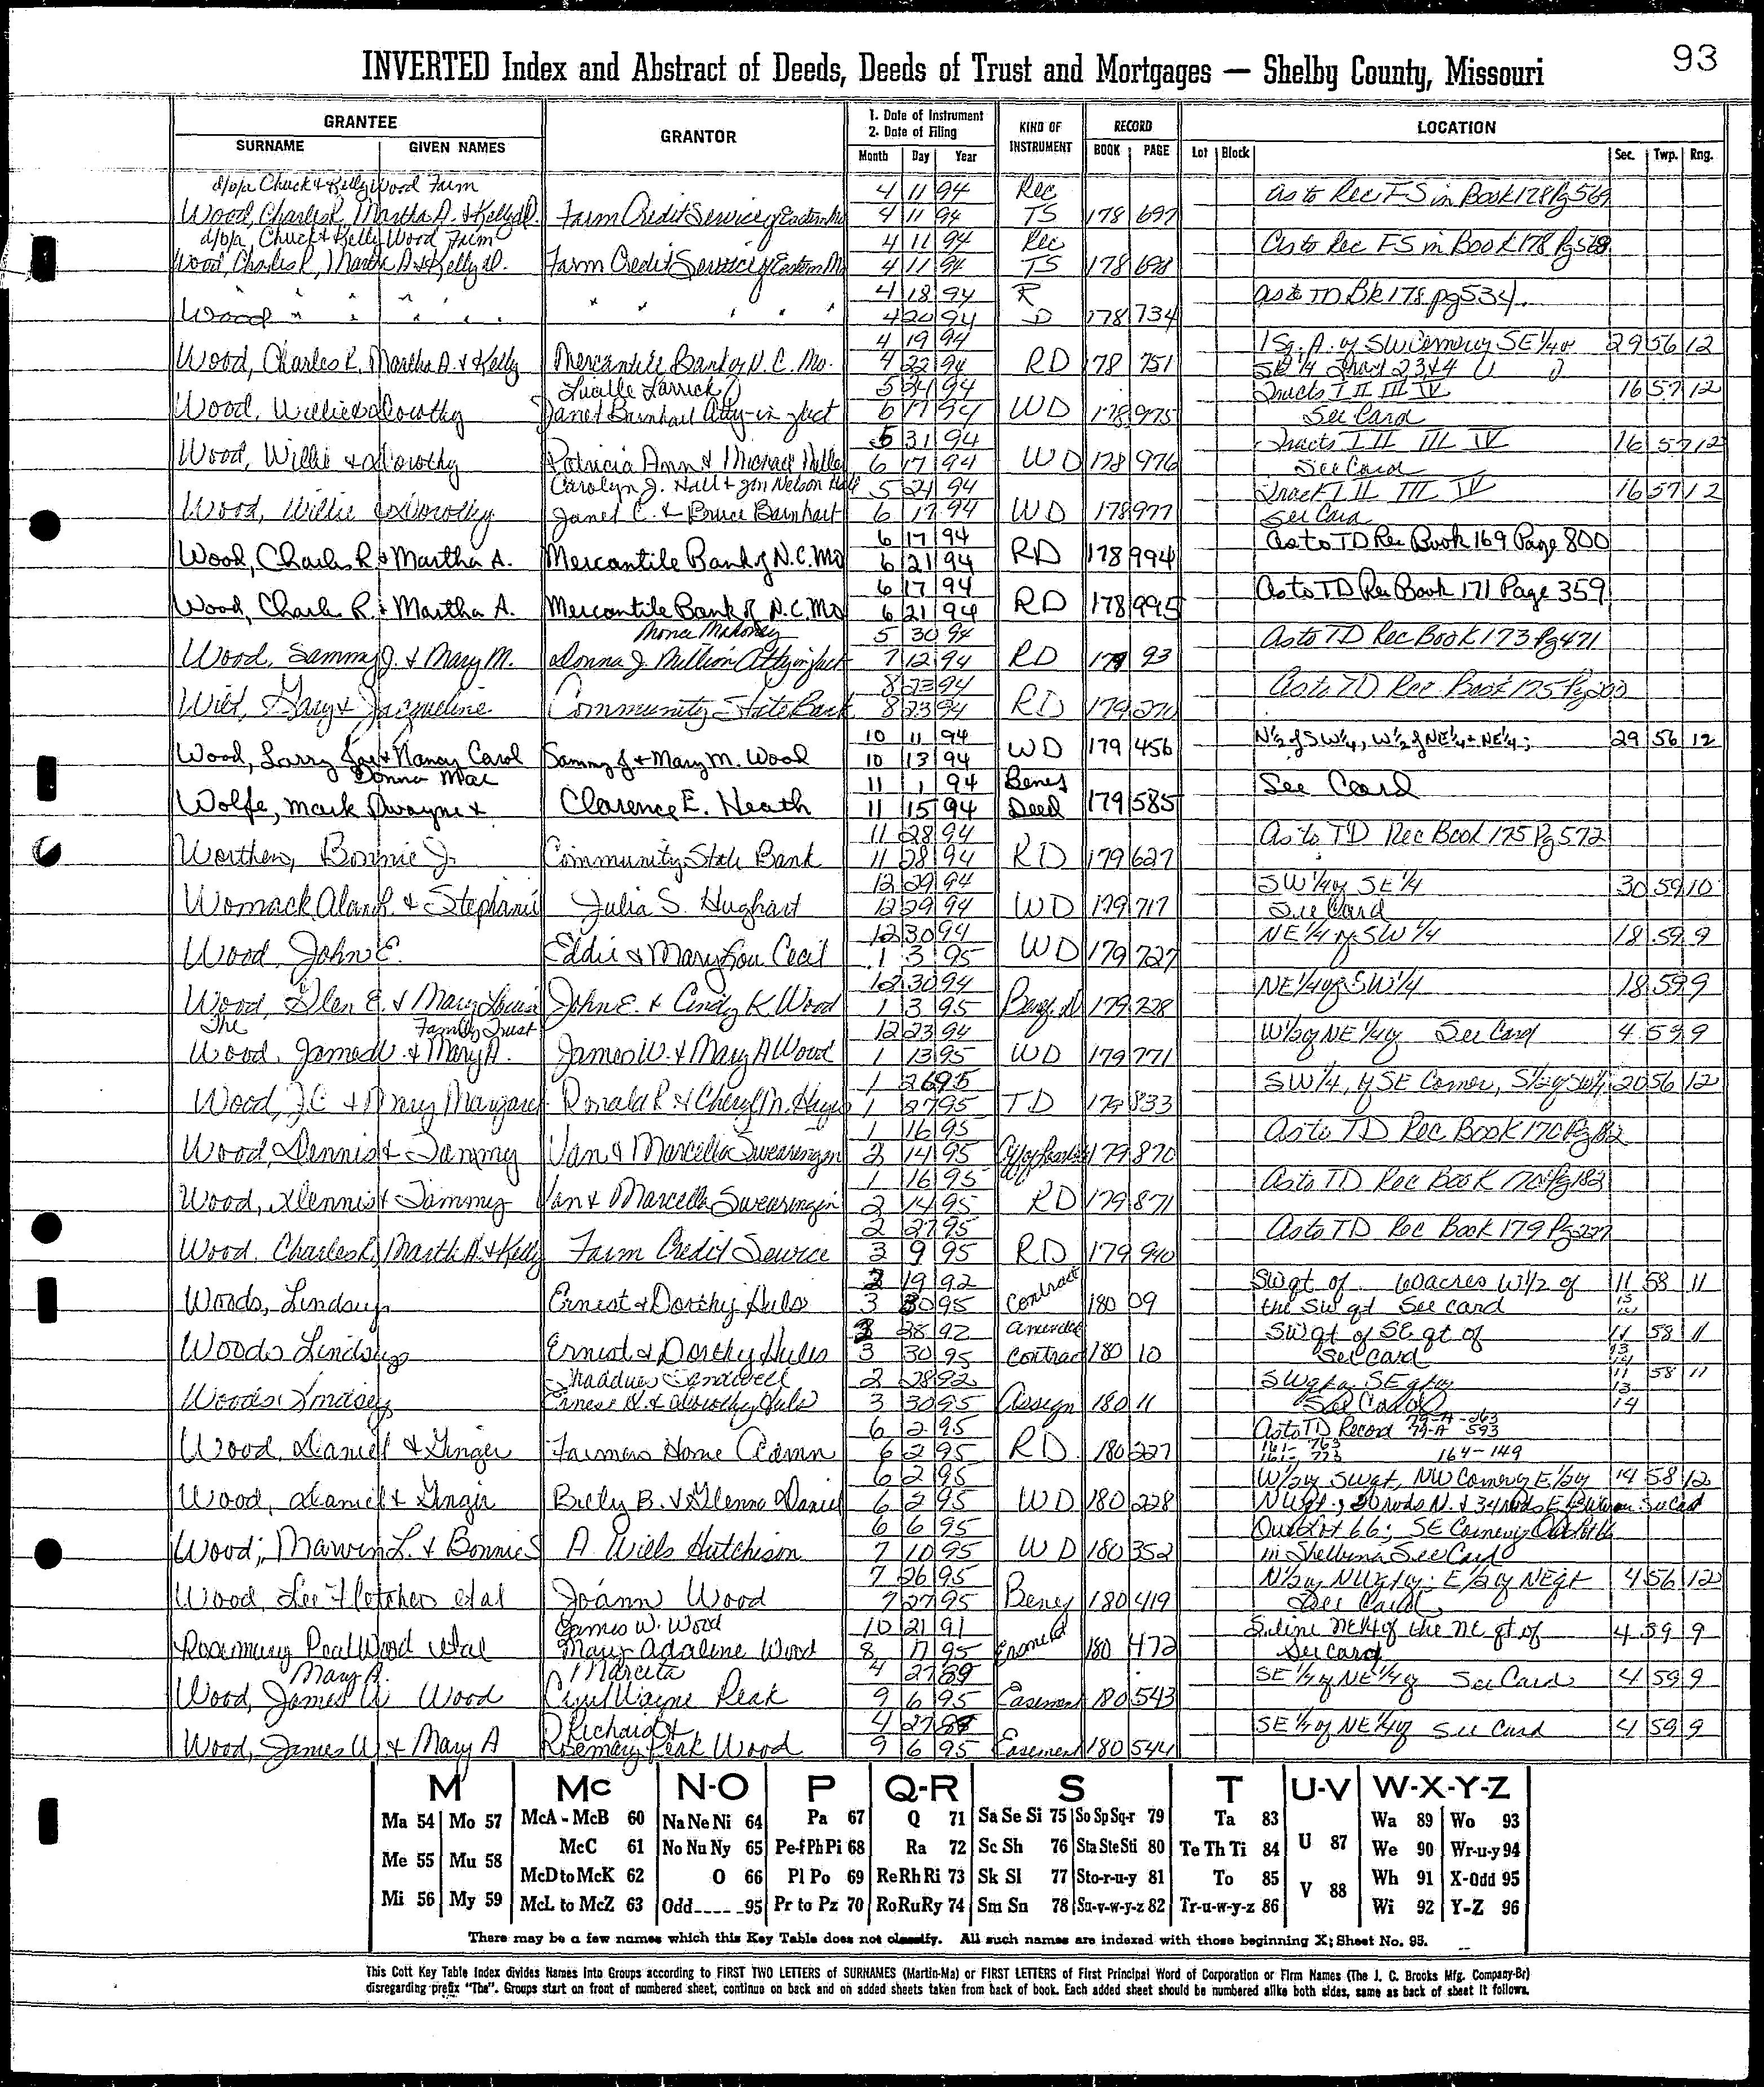 93
INVERTED Index and Abstract of Deeds, Deeds of Trust and Mortgages — Shelby County, Missouri
GRANTEE
SURNAME GIVEN NAMES
GRANTOR
1. Date of Instrument
2. Date of Filing
Month Day Year
KIND OF INSTRUMENT
RECORD
BOOK PAGE
LOCATION
Lot Block Sec. Twp. Rng.
d/b/a Chuck & Kelly Wood Farm 4 11 94 Rec as to Rec FS in Book 178 Pg 569
Wood, Charles R, Martha A. & Kelly D. Farm Credit Service of Eastern Mo 4 11 94 TS 178 697
d/b/a Chuck & Kelly Wood Farm 4 11 94 Rec As to Rec FS in Book 178 Pg 568
Wood Charles R, Martha A & Kelly D. Farm Credit Service of Eastern Mo 4 11 94 TS 178 698
" " " " " " " " 4 18 94 R as to TD Bk 178 pg 534
Wood " " " " 4 20 94 D 178 734
4 19 94 1 Sq. A. of SW Corner of SE 1/4 of 29 56 12
Wood, Charles R. Martha A & Kelly Mercantile Bank of N. C. Mo. 4 22 94 RD 178 751 SE 1/4 Tract 2 3 & 4
Lucille Larrick 5 24 94 Tracts I II III IV 16 57 12
Wood, Willie & Dorothy Janet Barnhart Atty-in-fact 6 17 94 WD 178 975 See Card
5 31 94 Tracts I II III IV 16 57 12
Wood, Willie & Dorothy Patricia Ann & Michael 6 17 94 WD 178 976 See Card
Carolyn J. Hall & Jon Nelson Hall 5 21 94 Tract I II III IV 16 57 12
Wood, Willie & Dorothy Janet C. & Bruce Barnhart 6 17 94 WD 178 977 See Card
6 17 94 As to TD Rec Book 169 Page 800
Wood, Charles R & Martha A. Mercantile Bank of N.C. Mo 6 21 94 RD 178 994
6 17 94 As to TD Rec Book 171 Page 359
Wood, Charles R. & Martha A. Mercantile Bank of N.C. Mo 6 21 94 RD 178 995
Mahoney 5 30 94 As to TD Rec Book 173 Pg 471
Wood, Sammy J. & Mary M. Donna J. Million Atty in fact 7 12 94 RD 179 93
8 23 94 As to TD Rec Book 175 Pg 200
Wilt, Gary & Jacqueline Community State Bank 8 23 94 RD 179 270
10 11 94 N 1/2 of SW 1/4, W 1/2 of NE 1/4 & NE 1/4; 29 56 12
Wood, Larry Joe & Nancy Carol Sammy J & Mary M. Wood 10 13 94 WD 179 456
Donna Mae 11 1 94 Benef See Card
Wolfe, Mark Dwayne & Clarence E. Heath 11 15 94 Deed 179 585
11 28 94 As to TD Rec Book 175 Pg 572
Worthen, Bonnie J. Community State Bank 11 28 94 RD 179 627
12 29 94 SW 1/4 of SE 1/4 30 59 10
Womack Alan R. & Stephanie Julia S. Hughart 12 29 94 WD 179 717 See Card
12 30 94 NE 1/4 of SW 1/4 18 59 9
Wood John E. Eddie & Mary Lou Cecil 1 3 95 WD 179 727
12 30 94 NE 1/4 of SW 1/4 18 59 9
Wood, Glen E. & Mary Louise John E. & Cindy K Wood 1 3 95 Benef. D 179 728
The Family Trust 12 23 94 W 1/2 of NE 1/4 of See Card 4 59 9
Wood, James W. & Mary A. James W. & Mary A Wood 1 13 95 WD 179 771
1 26 95 SW 1/4, of SE Corner, S 1/2 of SW 1/4 20 56 12
Wood, J C & Mary Margaret Ronald R & Cheryl M. Hayes 1 27 95 TD 179 833
1 16 95 As to TD Rec Book 170 Pg 182
Wood, Dennis & Tammy Van & Marcella Swearengen 2 14 95 179 870
1 16 95 As to TD Rec Book 170 Pg 182
Wood, Dennis & Tammy Van & Marcella Swearingin 2 14 95 RD 179 871
2 27 95 As to TD Rec Book 179 Pg 227
Wood. Charles R, Martha A. & Kelly Farm Credit Service 3 9 95 RD 179 940
2 19 92 Contract SW qt of 60 acres W 1/2 of 11 58 11
Woods, Lindsey Ernest & Dorothy Huls 3 30 95 180 09 the SW qt See card 13 14
3 28 92 amended SW qt of SE qt of 11 58 11
Woods Lindsey Ernest & Dorothy Hules 3 30 95 Contract 180 10 See Card 13 14
Thaddues 2 28 92 SW qt of SE qt of 11 58 11
Woods. Lindsey Ernest H. & Dorothy Huls 3 30 95 Assign 180 11 See Card 13 14
6 2 95 As to TD Record 79-A-263 79-A 593
Wood, Daniel & Ginger Farmers Home Admn 6 2 95 RD 180 227 161- 763 161- 773 164-149
6 2 95 W 1/2 of SW qt, NW Corner of E 1/2 of 14 58 12
Wood, Daniel & Ginger Billy B. & Glenna Daniel 6 2 95 WD 180 228 NW qt; 20 rods N. & 34 rods E See Card
6 6 95 Out Lot 66; SE Corner of Out Lot 66
Wood; Marvin L. & Bonnie S A. Wills Hutchison 7 10 95 WD 180 352 in Shelbina See Card
7 26 95 N 1/2 of NW qt of; E 1/2 of NE qt 4 56 12
Wood, Lee Fletcher etal Joann Wood 7 27 95 Benef 180 419 See Card
James W. Wood 10 21 91 S. line NE 1/4 of the NE qt of 4 59 9
Rosemary Peal Wood etal Mary Adaline Wood 8 17 95 180 472 See card
Mary A. Marcita 4 27 89 SE 1/4 of NE 1/4 of See Card 4 59 9
Wood, James W Wood Cyril Wayne Peak 9 6 95 Easement 180 543
Richard & 4 27 88 SE 1/4 of NE 1/4 of See Card 4 59 9
Wood, James W & Mary A Rosemary Peak Wood 9 6 95 Easement 180 544
M Mc N-O P Q-R S T U-V W-X-Y-Z
Ma 54 Mo 57 McA - McB 60 Na Ne Ni 64 Pa 67 Q 71 Sa Se Si 75 So Sp Sq-r 79 Ta 83 Wa 89 Wo 93
McC 61 No Nu Ny 65 Pe-f Ph Pi 68 Ra 72 Sc Sh 76 Sta Ste Sti 80 Te Th Ti 84 U 87 We 90 Wr-u-y 94
Me 55 Mu 58 McD to McK 62 O 66 Pl Po 69 Re Rh Ri 73 Sk Sl 77 Sto-r-u-y 81 To 85 V 88 Wh 91 X-Odd 95
Mi 56 My 59 McL to McZ 63 Odd 95 Pr to Pz 70 Ro Ru Ry 74 Sm Sn 78 Su-v-w-y-z 82 Tr-u-w-y-z 86 Wi 92 Y-Z 96
There may be a few names which this Key Table does not classify. All such names are indexed with those beginning X; Sheet No. 95.
This Cott Key Table Index divides Names Into Groups according to FIRST TWO LETTERS of SURNAMES (Martin-Ma) or FIRST LETTERS of First Principal Word of Corporation or Firm Names (The J. C. Brooks Mfg. Company-Br)
disregarding prefix "The". Groups start on front of numbered sheet, continue on back and on added sheets taken from back of book. Each added sheet should be numbered alike both sides, same as back of sheet it follows.